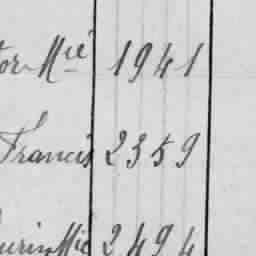 tor Mié 1941
Francis 2359
urin Mié 2494